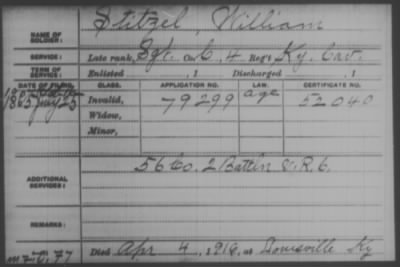 Stitzel, William
NAME OF SOLDIER:
SERVICE: Late rank, Sgt. Co. C, 4 Reg't Ky. Cav.
TERM OF SERVICE: Enlisted , 1 Discharged , 1
DATE OF FILING. CLASS. APPLICATION NO. LAW. CERTIFICATE NO.
1865 July 25 Invalid, 79299 age 52040
Widow,
Minor,
ADDITIONAL SERVICES: 56 Co. 2 Battln V.R.C.
REMARKS:
Died Apr 4, 1916, at Louisville Ky